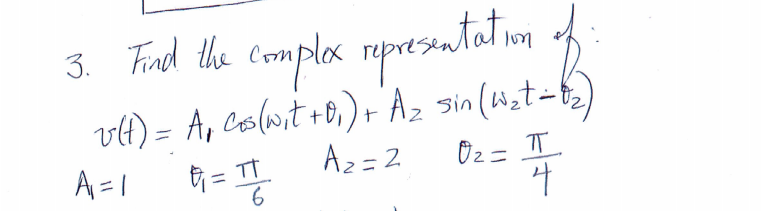 3. Find the complex representation of:
v(t) = A₁ Cos(ω₁t + θ₁) + A₂ sin(ω₂t - θ₂)
A₁ = 1 θ₁ = π/6 A₂ = 2 θ₂ = π/4